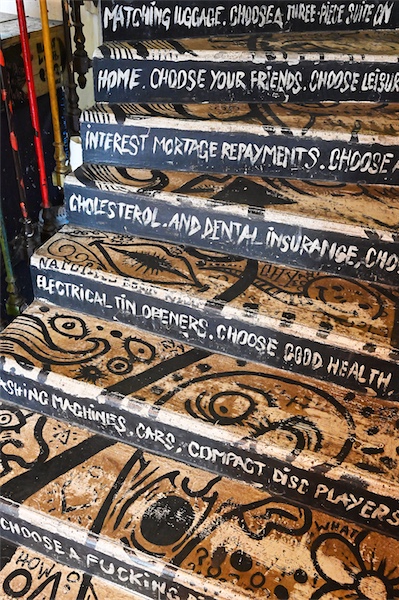 MATCHING LUGGAGE. CHOOSE A THREE-PIECE SUITE ON
HOME. CHOOSE YOUR FRIENDS. CHOOSE LEISUR
INTEREST MORTAGE REPAYMENTS. CHOOSE A
CHOLESTEROL. AND DENTAL INSURANGE. CHO
ELECTRICAL TIN OPENERS. CHOOSE GOOD HEALTH.
ASHING MACHINES. CARS. COMPACT DISC PLAYERS
WHAT
CHOOSE A FUCKING
HOW